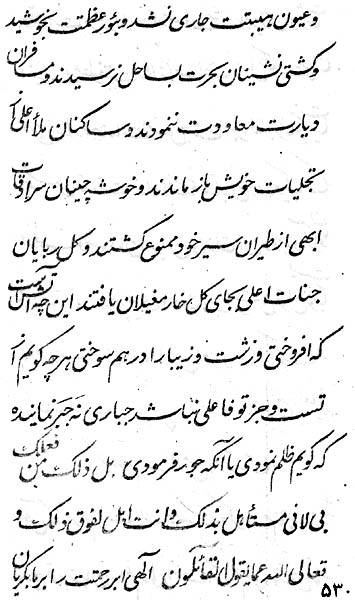 و عیون هیبتت جاری نشد و بئور عظمتت نجوشید
و کشتی نشینان بحرت بساحل نرسیدند و مسافران
دیارت معاودت ننمودند و ساکنان ملأ اعلی از
تجلیات خویش باز ماندند و خوشه چینان سرادقات
ابهی از طیران سیر خود ممنوع گشتند و گل ربایان
جنات اعلی بجای گل خار مغیلان یافتند این چه آتش است
که افروختی و زشت و زیبا را در هم سوختی هر چه گویم از
تست و جز تو فاعلی نباشد جباری نه جبر نماینده
که گویم ظلم نمودی یا آنکه جور فرمودی بل ذلک من فعلک
بی لانی مستأهل بذلک و انت اهل لفوق ذلک و
تعالی الله عما یقول القائلون الهی ابر رحمتت را بر ما بگریان
۵۳۰